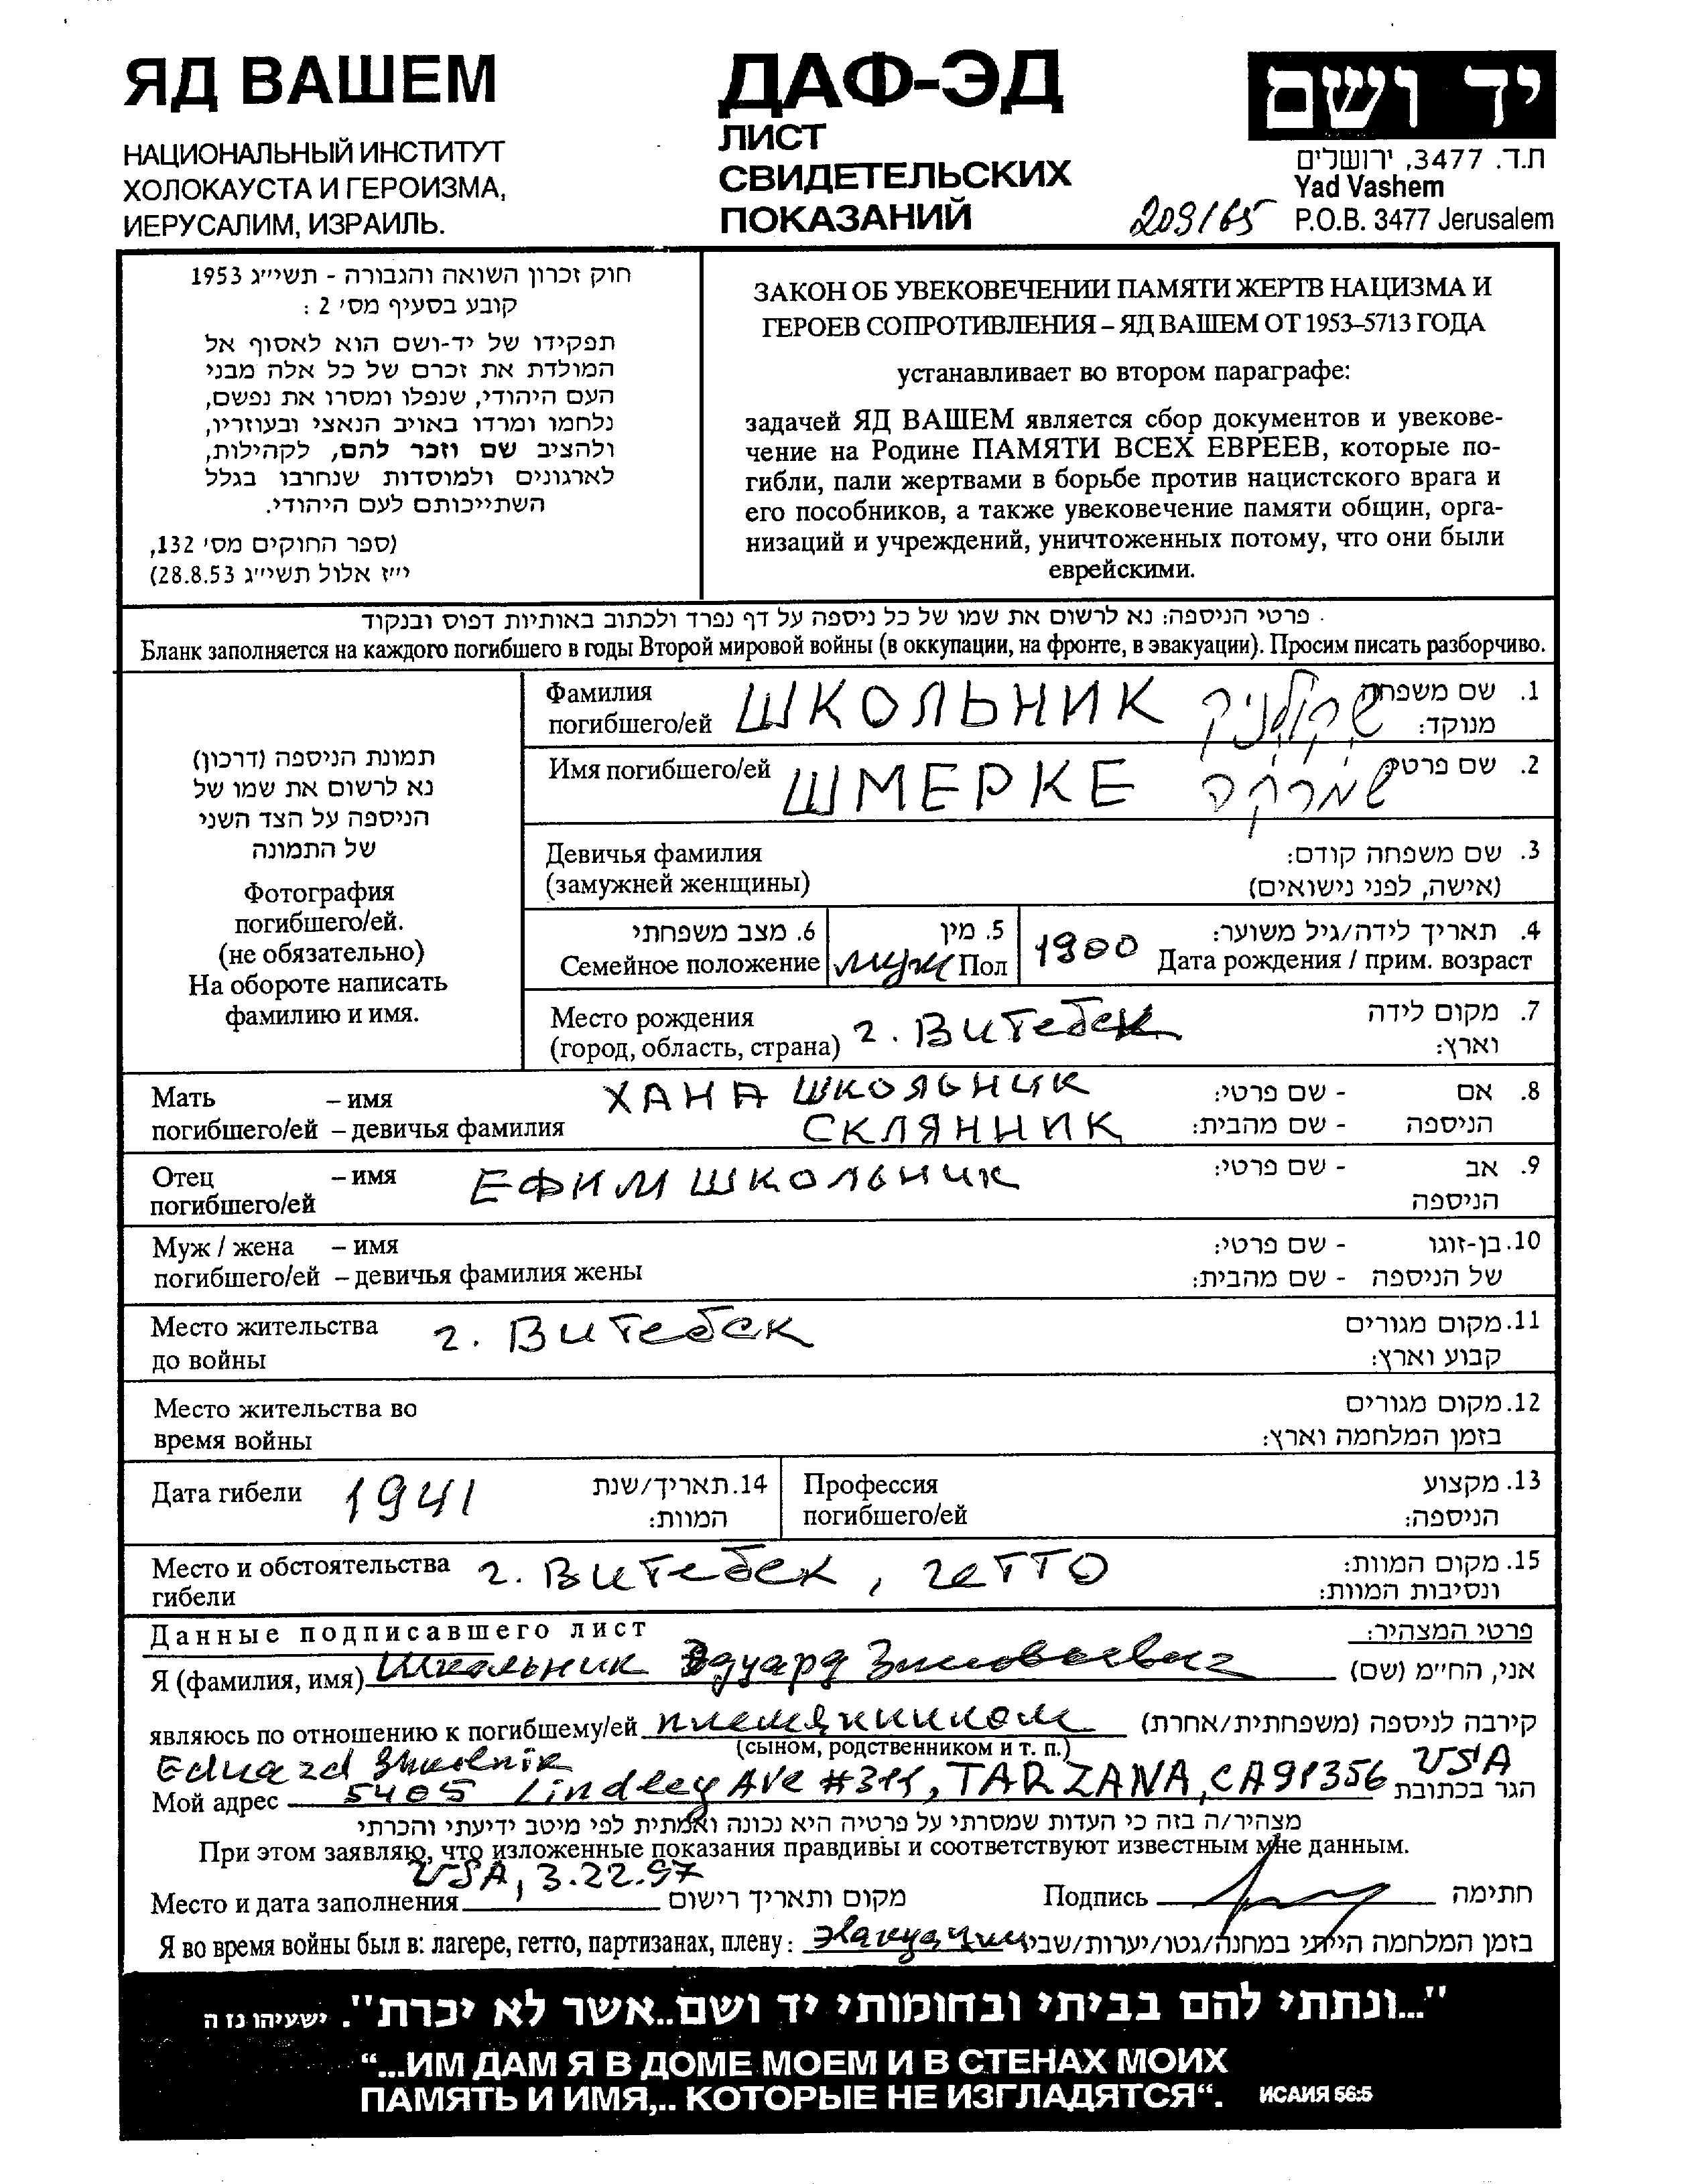 ЯД ВАШЕМ
НАЦИОНАЛЬНЫЙ ИНСТИТУТ
ХОЛОКАУСТА И ГЕРОИЗМА,
ИЕРУСАЛИМ, ИЗРАИЛЬ.
ДАФ-ЭД
ЛИСТ
СВИДЕТЕЛЬСКИХ
ПОКАЗАНИЙ
209/65
יד ושם
ת.ד. 3477, ירושלים
Yad Vashem
P.O.B. 3477 Jerusalem
חוק זכרון השואה והגבורה - תשי״ג 1953
קובע בסעיף מס׳ 2 :
תפקידו של יד-ושם הוא לאסוף אל
המולדת את זכרם של כל אלה מבני
העם היהודי, שנפלו ומסרו את נפשם,
נלחמו ומרדו באויב הנאצי ובעוזריו,
ולהציב שם וזכר להם, לקהילות,
לארגונים ולמוסדות שנחרבו בגלל
השתייכותם לעם היהודי.
(ספר החוקים מס׳ 132,
י״ז אלול תשי״ג 28.8.53)
ЗАКОН ОБ УВЕКОВЕЧЕНИИ ПАМЯТИ ЖЕРТВ НАЦИЗМА И
ГЕРОЕВ СОПРОТИВЛЕНИЯ – ЯД ВАШЕМ ОТ 1953–5713 ГОДА
устанавливает во втором параграфе:
задачей ЯД ВАШЕМ является сбор документов и увекове-
чение на Родине ПАМЯТИ ВСЕХ ЕВРЕЕВ, которые по-
гибли, пали жертвами в борьбе против нацистского врага и
его пособников, а также увековечение памяти общин, орга-
низаций и учреждений, уничтоженных потому, что они были
еврейскими.
פרטי הניספה: נא לרשום את שמו של כל ניספה על דף נפרד ולכתוב באותיות דפוס ובנקוד
Бланк заполняется на каждого погибшего в годы Второй мировой войны (в оккупации, на фронте, в эвакуации). Просим писать разборчиво.
תמונת הניספה (דרכון)
נא לרשום את שמו של
הניספה על הצד השני
של התמונה
Фотография
погибшего/ей.
(не обязательно)
На обороте написать
фамилию и имя.
Фамилия
погибшего/ей ШКОЛЬНИК שקולניק
1. שם משפחה
מנוקד:
Имя погибшего/ей ШМЕРКЕ שמרקה 2. שם פרטי
Девичья фамилия
(замужней женщины)
3. שם משפחה קודם:
(אישה, לפני נישואים)
6. מצב משפחתי
Семейное положение
5. מין
муж Пол
4. תאריך לידה/גיל משוער:
1900 Дата рождения / прим. возраст
Место рождения
(город, область, страна) г. Витебск
7. מקום לידה
וארץ:
Мать – имя ХАНА ШКОЛЬНИК 8. אם - שם פרטי:
погибшего/ей – девичья фамилия СКЛЯННИК הניספה - שם מהבית:
Отец – имя ЕФИМ ШКОЛЬНИК 9. אב - שם פרטי:
погибшего/ей הניספה
Муж / жена – имя 10. בן-זוגו - שם פרטי:
погибшего/ей – девичья фамилия жены של הניספה - שם מהבית:
Место жительства г. Витебск 11. מקום מגורים
до войны קבוע וארץ:
Место жительства во 12. מקום מגורים
время войны בזמן המלחמה וארץ:
Дата гибели 1941 14. תאריך/שנת
המוות:
Профессия 13. מקצוע
погибшего/ей הניספה:
Место и обстоятельства г. Витебск, гетто 15. מקום המוות:
гибели ונסיבות המוות:
Данные подписавшего лист פרטי המצהיר:
Я (фамилия, имя) Школьник Эдуард Зиновьевич אני, הח״מ (שם)
являюсь по отношению к погибшему/ей племянником קירבה לניספה (משפחתית/אחרת)
(сыном, родственником и т. п.)
Eduard Shkolnik
Мой адрес 5405 Lindley Ave #311, TARZANA, CA 91356 USA הגר בכתובת
מצהיר/ה בזה כי העדות שמסרתי על פרטיה היא נכונה ואמתית לפי מיטב ידיעתי והכרתי
При этом заявляю, что изложенные показания правдивы и соответствуют известным мне данным.
USA, 3.22.97
Место и дата заполнения מקום ותאריך רישום Подпись חתימה
Я во время войны был в: лагере, гетто, партизанах, плену: эвакуации בזמן המלחמה הייתי במחנה/גטו/יערות/שבי
"...ונתתי להם בביתי ובחומותי יד ושם..אשר לא יכרת". ישעיהו נז ה
“...ИМ ДАМ Я В ДОМЕ МОЕМ И В СТЕНАХ МОИХ
ПАМЯТЬ И ИМЯ,.. КОТОРЫЕ НЕ ИЗГЛАДЯТСЯ“. ИСАИЯ 56:5